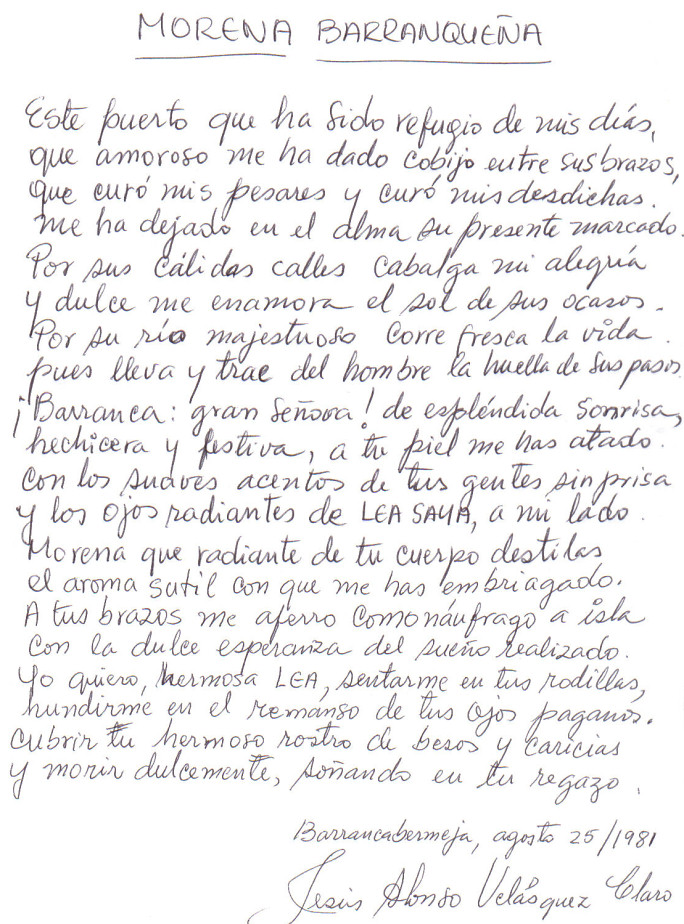 MORENA BARRANQUEÑA
Este puerto que ha sido refugio de mis días,
que amoroso me ha dado cobijo entre sus brazos,
que curó mis pesares y curó mis desdichas.
me ha dejado en el alma su presente marcado.
Por sus cálidas calles cabalga mi alegría
y dulce me enamora el sol de sus ocasos.
Por su río majestuoso corre fresca la vida.
pues lleva y trae del hombre la huella de sus pasos
¡Barranca: gran señora! de espléndida sonrisa,
hechicera y festiva, a tu piel me has atado.
Con los suaves acentos de tus gentes sin prisa
y los ojos radiantes de LEA SAYA, a mi lado.
Morena que radiante de tu cuerpo destilas
el aroma sutil con que me has embriagado.
A tus brazos me aferro como náufrago a isla
con la dulce esperanza del sueño realizado.
Yo quiero, hermosa LEA, sentarme en tus rodillas,
hundirme en el remanso de tus ojos paganos.
cubrir tu hermoso rostro de besos y caricias
y morir dulcemente, soñando en tu regazo.
Barrancabermeja, agosto 25/1981
Jesús Alonso Velásquez Claro